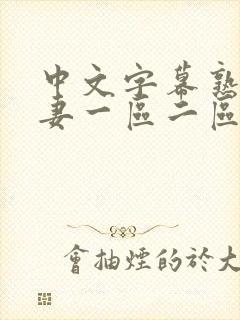 中文字幕熟
妻一區二區
會抽煙的於大